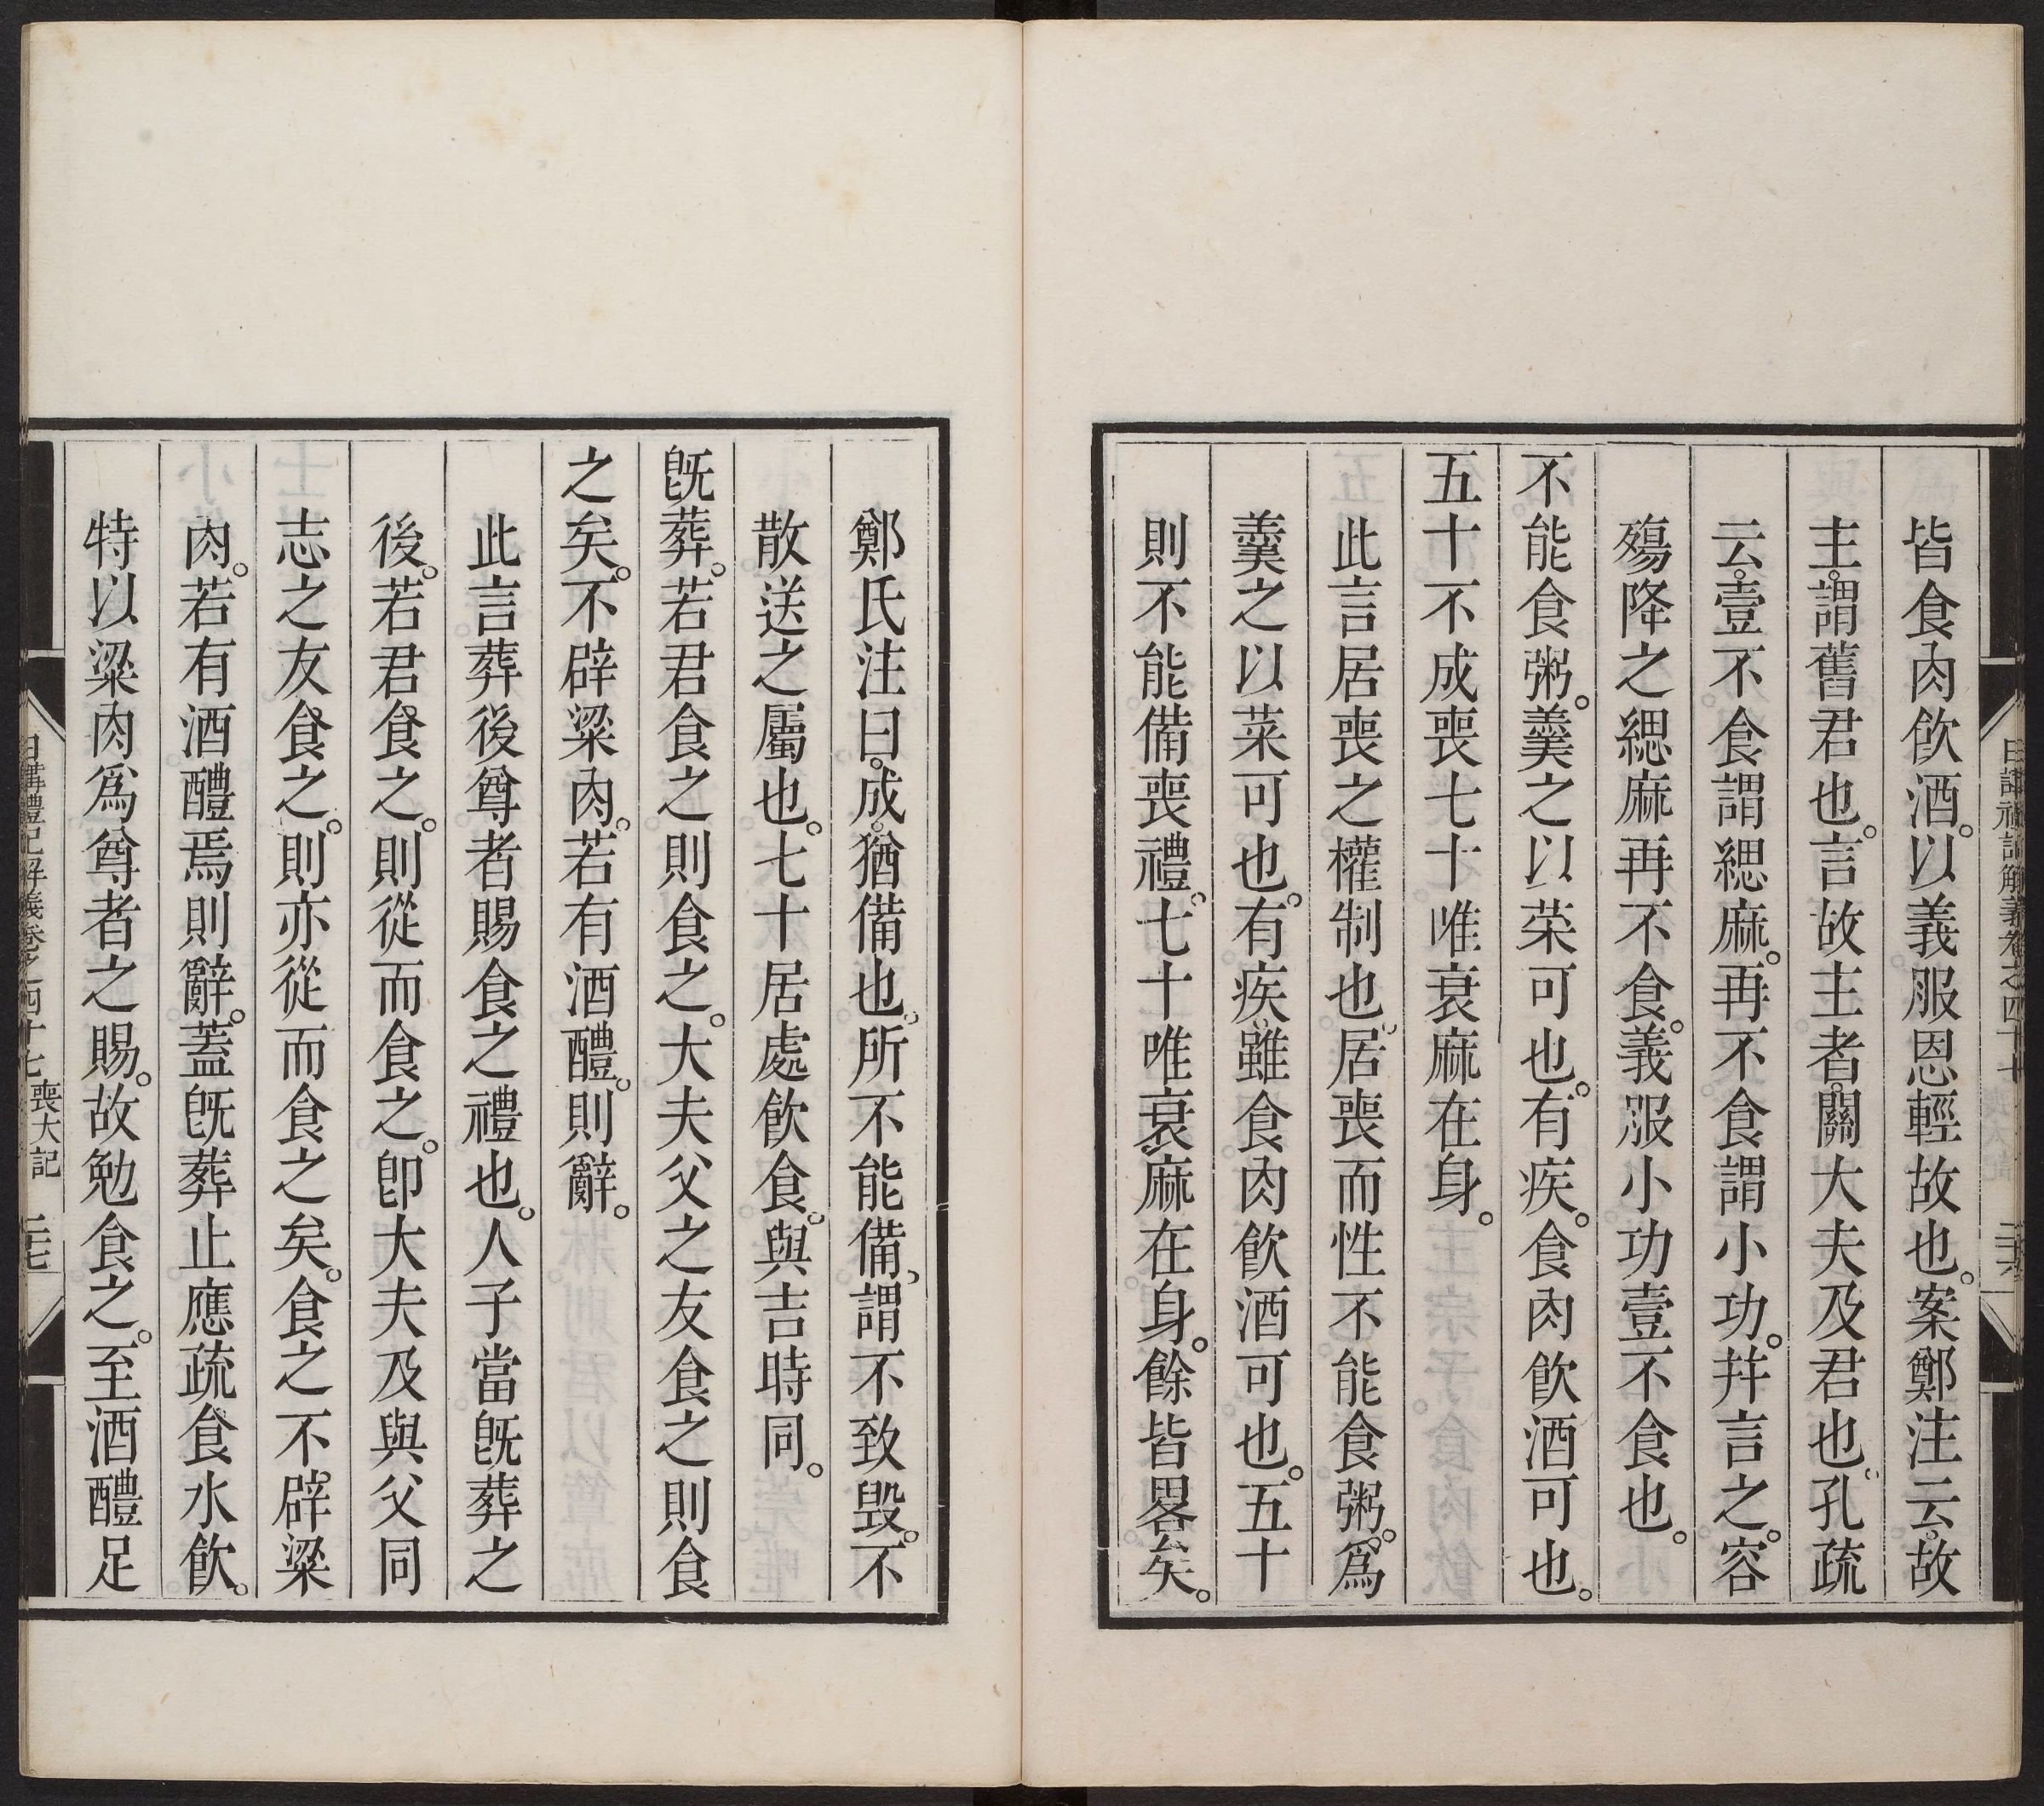 皆食肉飲酒。以義服恩輕故也。案鄭注云。故
主。謂舊君也。言故主者。關大夫及君也。孔疏
云。壹不食謂緦麻。再不食謂小功。幷言之。容
殤降之緦麻再不食。義服小功壹不食也。
不能食粥。羹之以菜可也。有疾。食肉飲酒可也。
五十不成喪七十唯衰麻在身。
此言居喪之權制也。居喪而性不能食粥。爲
羹之以菜可也。有疾。雖食肉飲酒可也。五十
則不能備喪禮。七十唯衰麻在身。餘皆畧矣。
日講禮記解義卷之四十七 喪大記 二十六
鄭氏注曰。成。猶備也。所不能備。謂不致毀。不
散送之屬也。七十居處飲食。與吉時同。
旣葬。若君食之則食之。大夫父之友食之則食
之矣。不辟粱肉。若有酒醴。則辭。
此言葬後尊者賜食之禮也。人子當旣葬之
後。若君食之。則從而食之。卽大夫及與父同
志之友食之。則亦從而食之矣。食之不辟粱
肉。若有酒醴焉則辭。蓋旣葬止應疏食水飲。
特以粱肉爲尊者之賜。故勉食之。至酒醴足
日講禮記解義卷之四十七 喪大記 二十七